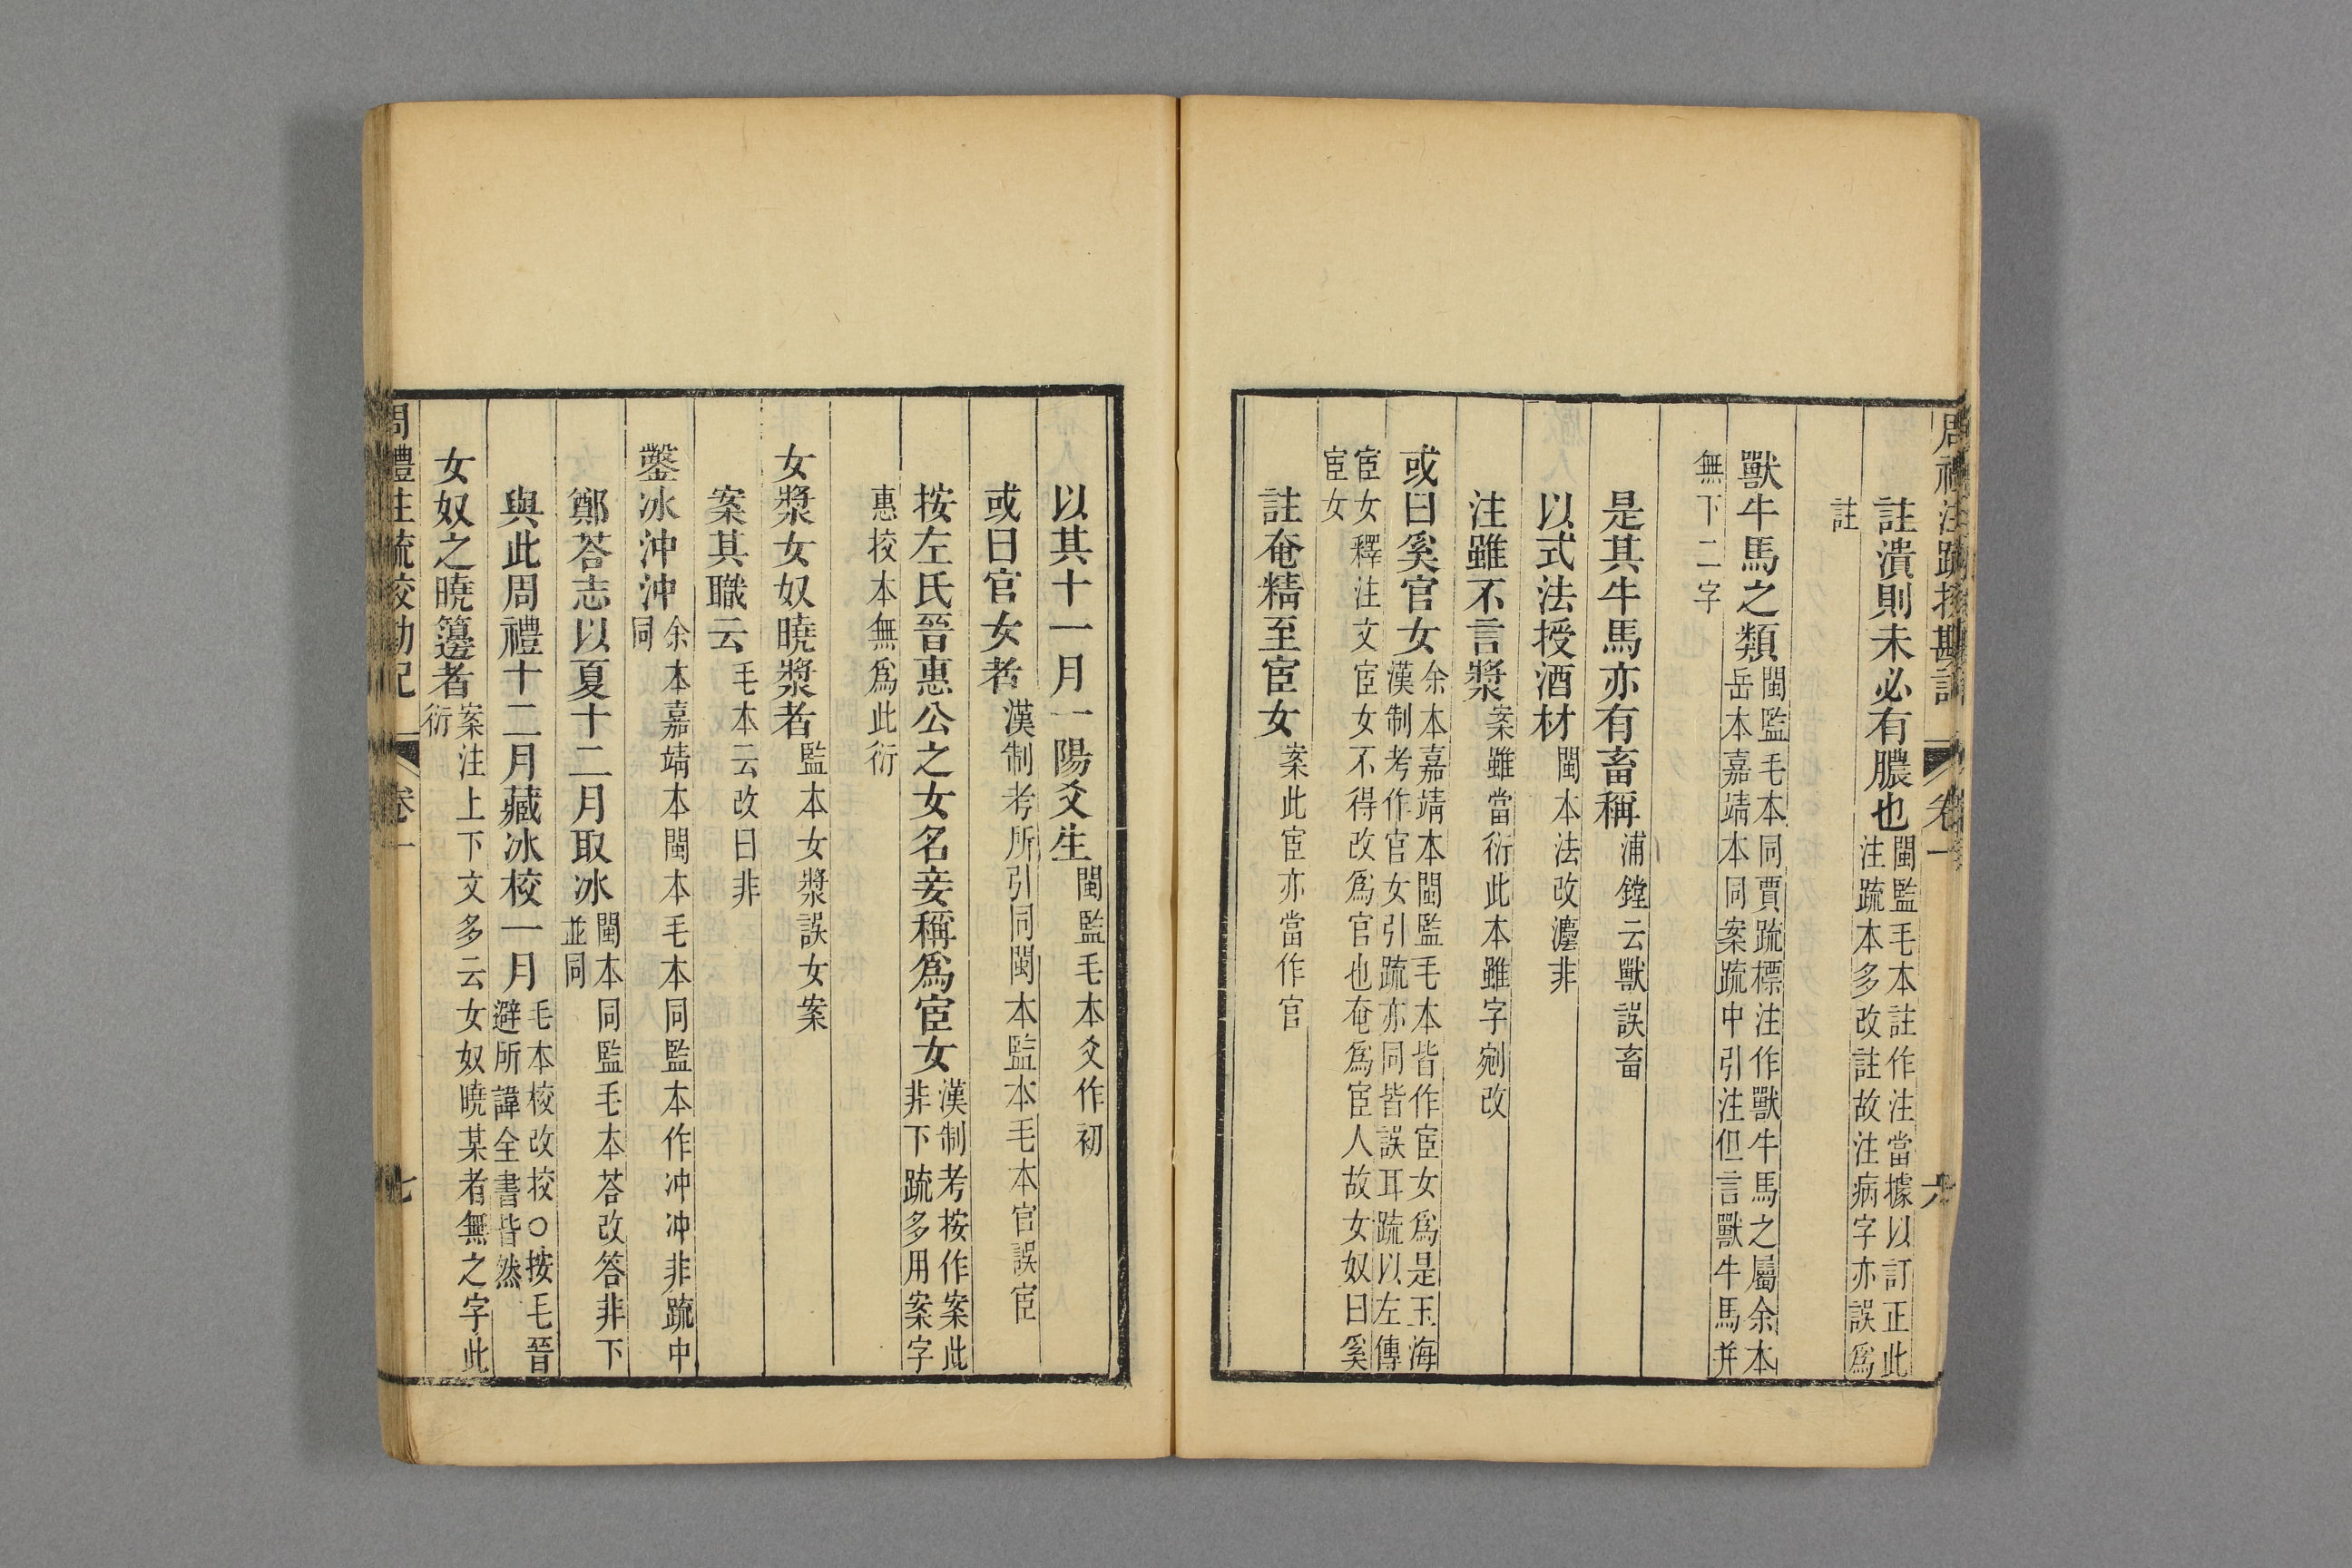 周禮注疏挍勘記 卷一 六
註潰則未必有膿也閩監毛本註作注當據以訂正此注疏本多改註故注病字亦誤爲
註
獸牛馬之類閩監毛本同賈疏標注作獸牛馬之屬余本岳本嘉靖本同案疏中引注但言獸牛馬并
無下二字
是其牛馬亦有畜稱浦鏜云獸誤畜
以式法授酒材閩本法改灋非
注雖不言漿案雖當衍此本雖字剜改
或曰奚官女余本嘉靖本閩監毛本皆作宦女爲是玉海漢制考作官女引疏亦同皆誤耳疏以左傳
宦女釋注文宦女不得改爲官也奄爲宦人故女奴曰奚宦女
註奄精至宦女案此宦亦當作官
以其十一月一陽爻生閩監毛本爻作初
或曰官女者漢制考所引同閩本監本毛本官誤宦
按左氏晉惠公之女名妾稱爲宦女漢制考按作案此非下疏多用案字
惠挍本無爲此衍
女漿女奴曉漿者監本女漿誤女案
案其職云毛本云改曰非
鑿冰沖沖余本嘉靖本閩本毛本同監本作冲冲非疏中同
鄭荅志以夏十二月取冰閩本同監毛本荅改答非下並同
與此周禮十二月藏冰校一月毛本校改挍○按毛晉避所諱全書皆然
女奴之曉籩者案注上下文多云女奴曉某者無之字此衍
周禮注疏挍勘記 卷一 七